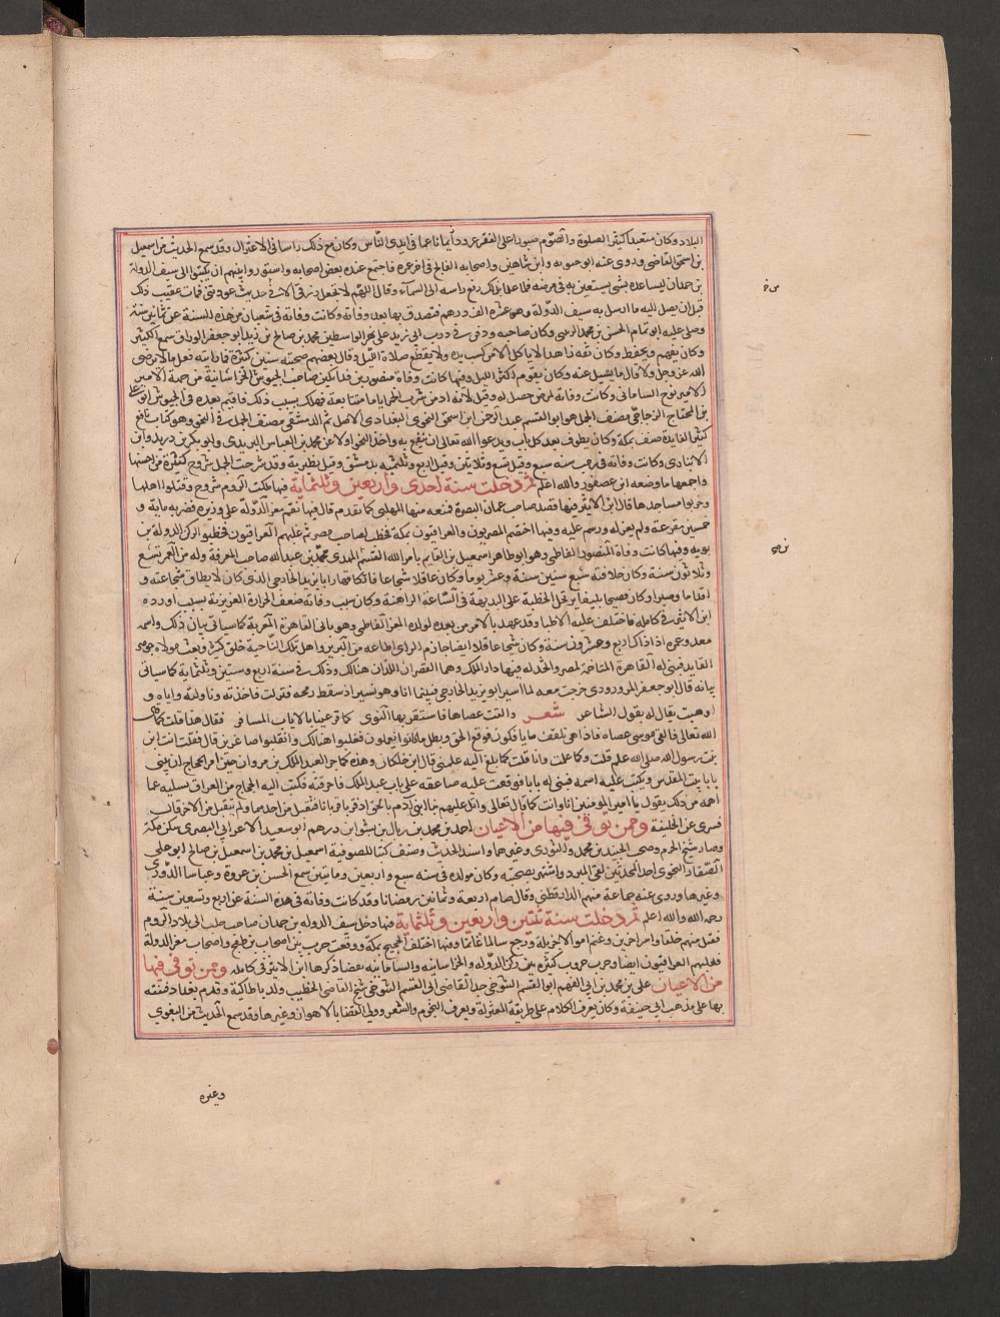 البلاد وكان متعبدا كثير الصلوة والصوم صبورا على الفقر عزوفا عما في ايدي الناس وكان مع ذلك راسا في الاعتزال وقد سمع الحديث من اسمعيل
بن اسحق القاضي وروى عنه ابو حيويه وابن شاهين واصابه الفالج في اخر عمره فاجتمع عنده بعض اصحابه واستوروا بينهم ان يكتبوا الى سيف الدولة
بن حمدان ليساعده بشي يستعين به في مرضه فلما علم بذلك رفع راسه الى السماء وقال اللهم لا تجعل رزقي الا من حيث عودتني فمات عقيب ذلك
قبل ان يصل اليه ما ارسل به سيف الدولة وهو عشرة الف درهم فتصدق بها بعد وفاته وكانت وفاته في شعبان من هذه السنة عن ثمانين سنة
وصلى عليه ابو تمام الحسن بن محمد وكان صاحبه ودفن في درب ابي زيد على نهر الواسطيين محمد بن صالح بن زيد ابو جعفر الوراق سمع الكثير
وكان يفهم ويحفظ وكان ثقه زاهدا لا ياكل الا من كسب يده ولا يقطع صلاة الليل وقال بعضهم صحبته سنين كثيرة فما رايته فعل ما لا يرضي
الله عز وجل ولا قال ما يسيل عنه وكان يقوم اكثر الليل وفيها كانت وفاة منصور بن قراتكين صاحب الجيوش الخراسانية من جهة الامير
الامير نوح الساماني وكانت وفاته لمرض حصل له وقيل لانه ادمن شرب الخمر اياما متتابعة فهلك بسبب ذلك فاقيم بعده في الجيوش ابو علي
بن المحتاج الزجاجي مصنف الجمل هو ابو القسم عبد الرحمن ابن اسحق النحوي البغدادي الاصل ثم الدمشقي مصنف الجمل في النحو وهو كتاب نافع
كثير الفايدة صنف بمكة وكان يطوف بعد كل باب ويدعوا الله تعالى ان ينفع به واخذ النحو اولا عن محمد بن العباس اليزيدي وابو بكر بن دريد وابن
الانباري وكانت وفاته في رجب سنه سبع وقيل تسع وثلاثين وقيل اربع وثلثيه بدمشق وقيل بطبرية وقد شرحت الجمل شروح كثيرة من احسنها
واجمعها ما وضعه ابن عصفور والله اعلم ثم دخلت سنة احدى واربعين وثلثماية فيها ملكت الروم سروج وقتلوا اهلها
وخربوا مساجدها قال ابن الاثير وفيها قصد صاحب عمان البصرة فمنعه منها المهلبي كما تقدم قال فيها نقم معز الدولة على وزيره فضربه ماية و
خمسين مقرعة ولم يعزله ورسم عليه وفيها اختصم المصريون والعراقيون بمكة فخطب لصاحب مصر ثم غلبهم العراقيون فخطبوا لركن الدولة بن
بويه وفيها كانت وفاة المنصور الفاطمي وهو ابو طاهر اسمعيل بن القايم بامر الله القسم المهدي محمد بن عبد الله صاحب المعرفة وله من العمر تسع
وثلاثون سنة وكان خلافته سبع سنين سنة وعشر يوما وكان عاقلا شجاعا فاتكا قهار ابا يزيد الخارجي الذي كان لا يطاق شجاعته و
اقداما وصبرا وكان فصيحا بليغا يرتجل الخطبة على البديهة في الساعة الراهنة وكان سبب وفاته ضعف الحرارة الغريزية بسبب اورده
ابن الاثير في كامله فاختلف عليه الاطبا وقد عهد بالامر من بعده لولده المعز الفاطمي وهو باني القاهرة المعزية كما سياتي بيان ذلك واسمه
معد وعمره اذ ذاك اربع وعشرون سنة وكان شجاعا عاقلا ايضا حازم الراي اطاعه من البربر واهل تلك الناحية خلق كثير وبعث مولاه جوهر
القايد فبنى له القاهرة المتاخمة لمصر واتخذ له فيها دار الملك وهما القصران اللذان هنالك وذلك في سنة اربع وستين وثلثماية كما سياتي
بيانه قال ابو جعفر المروروذي خرجت معه لما اسير ابو يزيد الخارجي فبينما انا وهو نسير اذ سقط رمحه فنزلت فاخذته وناولته واياه و
اوهبت بقال له بقول الشاعر شعر والقت عصاها فاستقر بها النوى كما قر عينا بالاياب المسافر فقال هذا قلت كما قال
الله تعالى فالقى موسى عصاه فاذا هي تلقف ما يافكون فوقع الحق وبطل ما كانوا يعملون فغلبوا هنالك وانقلبوا صاغرين قال فقلت انت ابن
بنت رسول الله صلى الله عليه قلت وكما علت وانا قلت كما بلغ اليه علمي قال ابن خلكان وهذه كما جرا لعبد الملك بن مروان حين امر الحجاج ان يبني
بابا ببيت المقدس ويكتب عليه اسمه فبنى له بابا فوقعت عليه صاعقه على باب عبد الملك فاحرقته فكتب اليه الحجاج من العراق يسليه عما
اهمه من ذلك يقول يا امير المومنين انا وانت كما قال تعالى واتل عليهم نبا ابني آدم بالحق اذ قربا قربانا فتقبل من احدهما ولم يتقبل من الاخر قال
فسري عن الخليفة وممن توفي فيها من الاعيان احمد بن محمد بن زياد بن بشر ابن درهم ابو سعيد الاعرابي البصري سكن مكة
وصار شيخ الحرم وصحب الجنيد بن محمد والنوري وغيرهما واسند الحديث وصنف كتبا للصوفية اسمعيل بن محمد بن اسمعيل بن صالح ابو علي
الصفار النحوي احد المحدثين لقي المبرد واشتهر بصحبته وكان مولده في سنه سبع واربعين ومايتين سمع الحسن بن عروة وعباسا الدوري
وغيرهما وروى عنه جماعة منهم الدارقطني وقال صام اربعة وثمانين رمضانا وقد كانت وفاته في هذه السنة عن اربع وتسعين سنة
رحمه الله والله اعلم ثم دخلت سنة ثنتين واربعين وثلثماية فيها دخل سيف الدوله بن حمدان صاحب حلب الى بلاد الروم
فقتل منهم خلقا واسر اخرين وغنم اموالا جزيلة ورجع سالما غانما وفيها اختلف الحجيج بمكة ووقعت حرب بين اصحاب بن طغج واصحاب معز الدولة
فغلبهم العراقيون ايضا وجرت حروب كثيره بين ركن الدوله والخراسانيه والسامانيه بعضا ذكرها ابن الاثير في كامله وممن توفي فيها
من الاعيان علي بن محمد بن ابي الفهم ابو القسم التنوخي جد القاضي ابي القسم التنوخي شيخ القاضي الخطيب ولد بانطاكية وقدم بغداد فتفقه
بها على مذهب ابي حنيفة وكان يعرف الكلام على طريقة المعتزلة ويعرف النجوم والشعر وولي القضا بالاهواز وغيرها وقد سمع الحديث من البغوي
وغيره